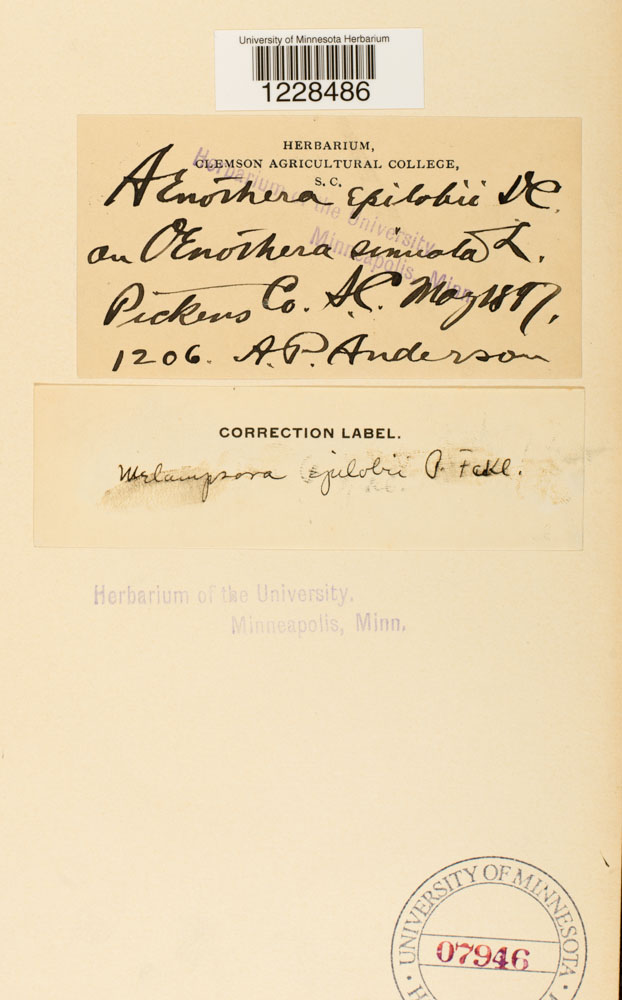 University of Minnesota Herbarium
1228486
HERBARIUM,
CLEMSON AGRICULTURAL COLLEGE,
S. C.
Herbarium of the University,
Minneapolis, Minn.
AEnothera epilobii DC.
on OEnothera sinuata L.
Pickens Co. S.C. May 1897.
1206. A. P. Anderson
CORRECTION LABEL.
Melampsora epilobii P. Fckl.
Herbarium of the University.
Minneapolis, Minn.
UNIVERSITY OF MINNESOTA
07946